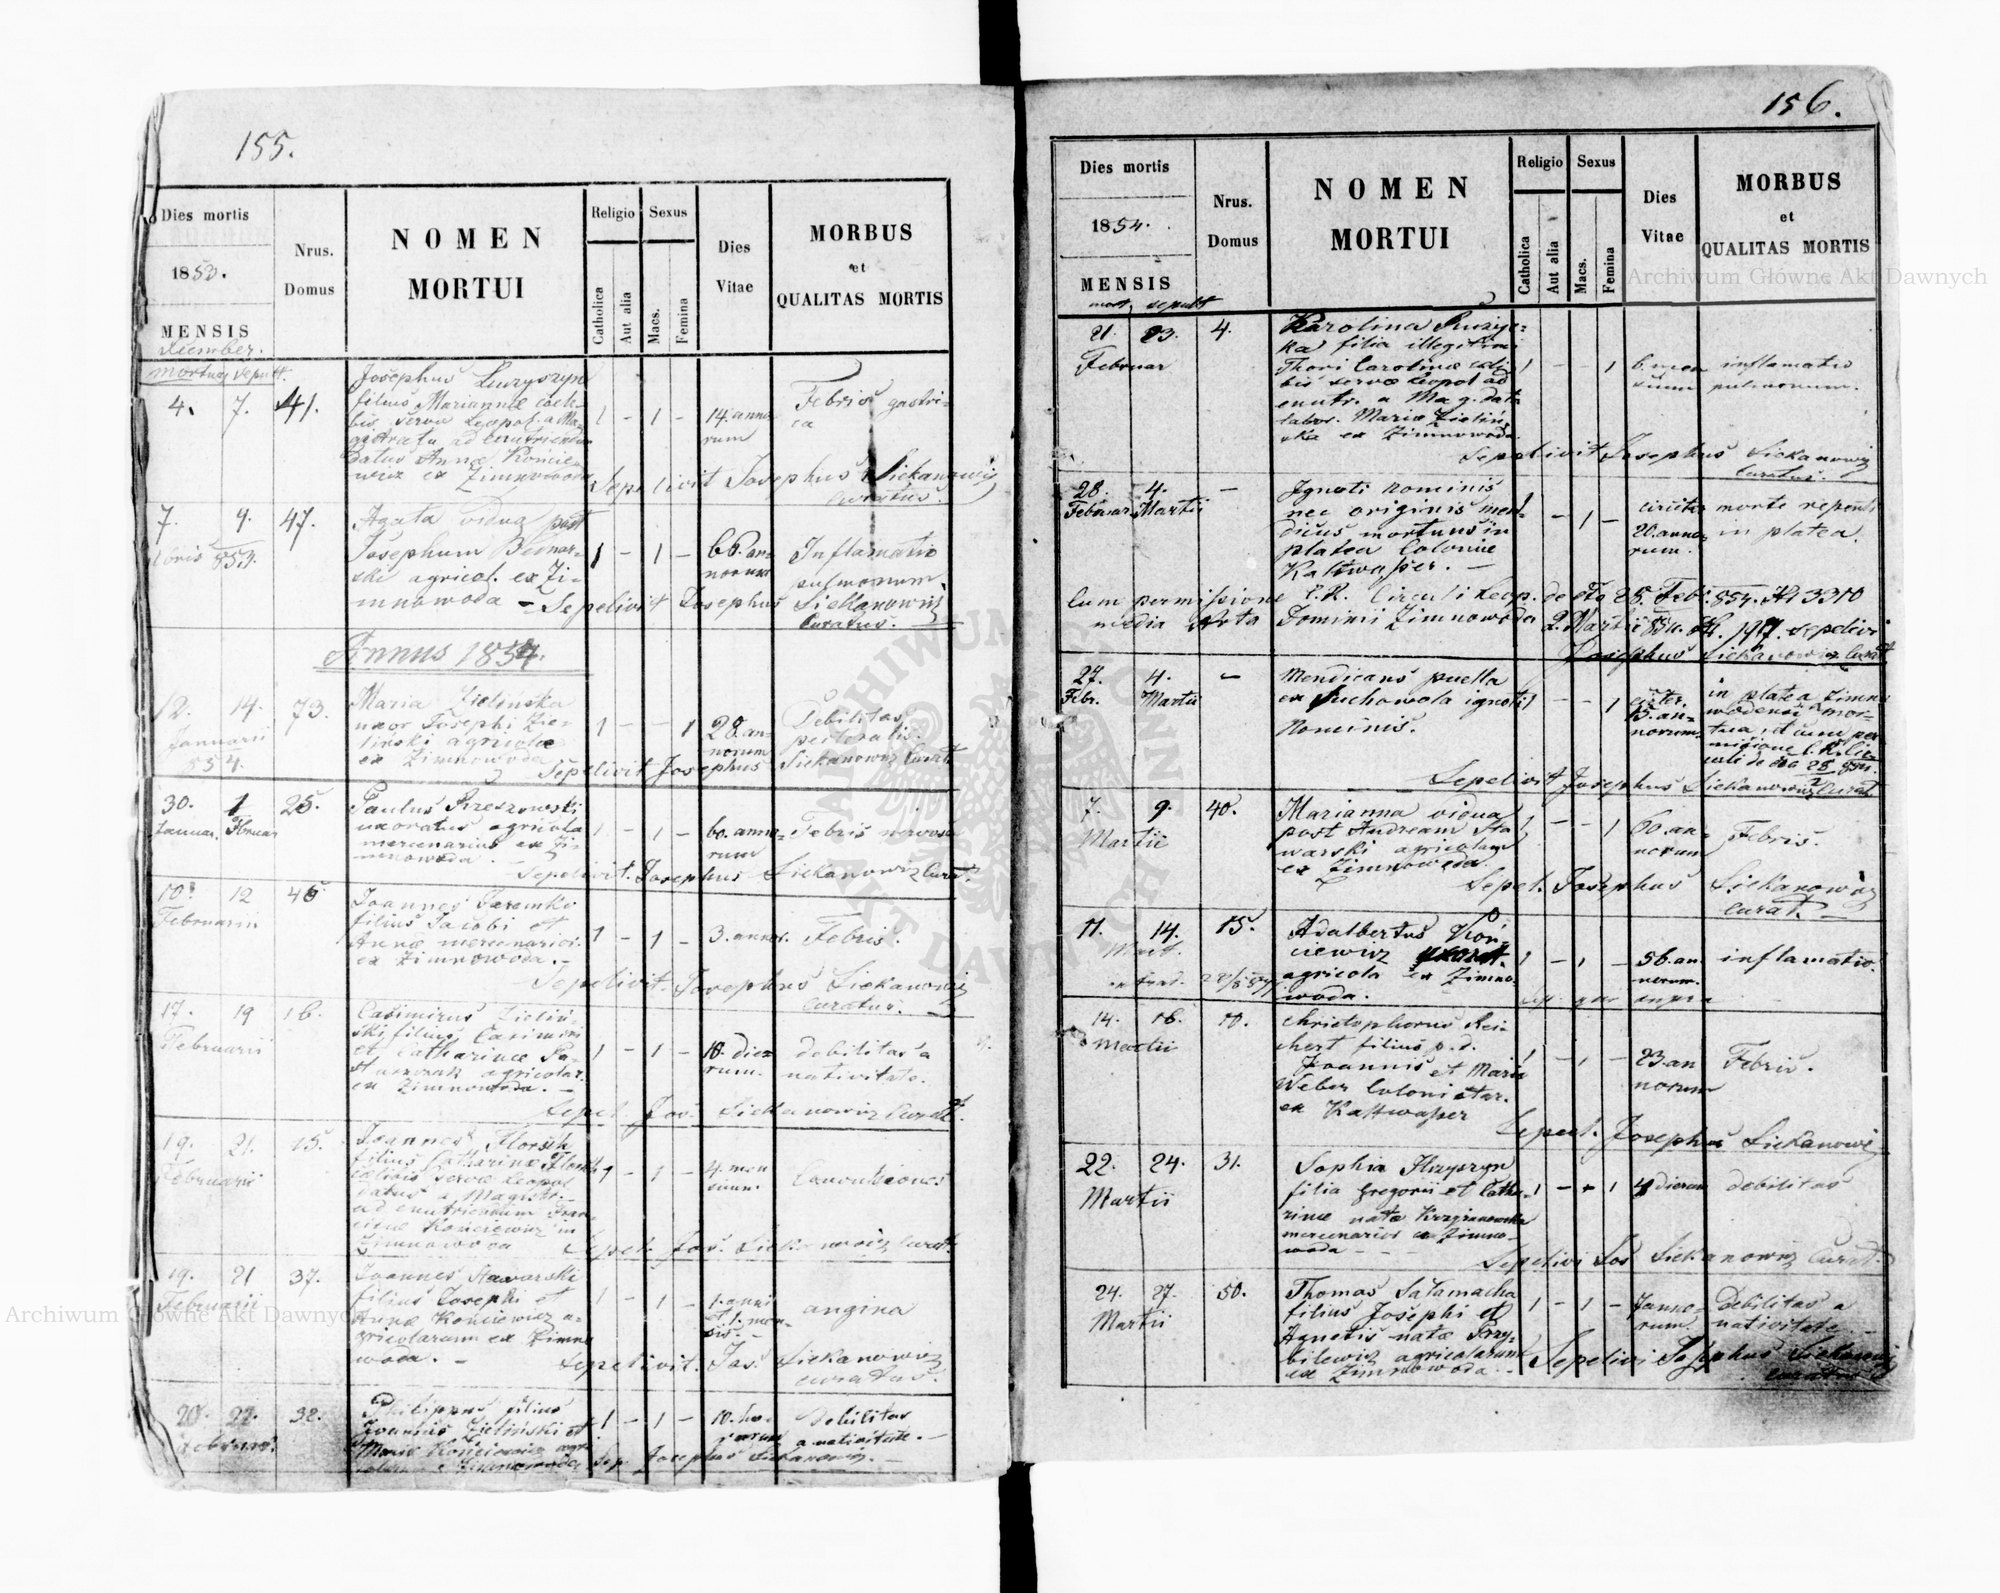 155.
Dies mortis
1853.
MENSIS
mortus sepult.
Nrus.
Domus
NOMEN
MORTUI
Religio
Sexus
Catholica
Aut alia
Macs.
Femina
Dies
Vitae
MORBUS
et
QUALITAS MORTIS
4. 7. 41.
Josephus
filius Mariannæ cœli-
bis servæ Leopol. a Ma-
gistratu ad enutriendum
datus Annæ Końcie-
wicz ex Zimnowoda
1 - 1 -
14. anno-
rum
Febris gastri-
ca
Sepelivit Josephus Siekanowicz
curatus.
7. 9. 47.
853.
Agata vidua post
Josephum Bednar-
ski agricol. ex Zi-
mnowoda
1 - 1 -
66. an-
norum
Inflamatio
pulmonum
Sepelivit Josephus Siekanowicz
Curatus.
Annus 1854.
12. 14. 73.
Januarii
854.
Maria Zielińska
uxor Josephi Zie-
liński agricolæ
ex Zimnowoda
1 - - 1
28. an-
norum
Debilitas
pectoralis.
Sepelivit Josephus Siekanowicz Curat
30. 1 25.
Januar. Februar
Paulus Rzeszowski
uxoratus agricola
mercenarius ex Zi-
mnowoda.
1 - 1 -
60. anno-
rum
Febris nervosa
Sepelivit Josephus Siekanowicz Curat.
10. 12 46
Februarii
Joannes Jaremko
filius Jacobi et
Annæ mercenarior.
ex Zimnowoda.
1 - 1 -
3. annor.
Febris.
Sepelivit Josephus Siekanowicz
curatus.
17. 19 16.
Februarii
Casimirus Zieliń-
ski filius Casimiri
et Catharinæ Pa-
agricolar.
ex Zimnowoda.
1 - 1 -
18. die-
rum.
debilitas a
nativitate.
Sepel. Jos. Siekanowicz Curat.
19. 21. 15.
Februarii
Joannes
filius Catharinæ
cœlibis servæ Leopol
datus a Magistr.
ad enutriendum Fran-
ciscæ Końciewicz in
Zimnowoda
1 - 1 -
4. men
sium.
Convulsiones
Sepel. Jos. Siekanowicz Curat.
19. 21 37.
Februarii
Joannes Stawarski
filius Josephi et
Annæ Końciewicz a-
gricolarum ex Zimno
woda.
1 - 1 -
1. anni
et 1. men-
sis.
angina
Sepelivit. Jos. Siekanowicz
curatus.
20. 22. 32.
Februar.
Philippus filius
Joannis Zieliński et
Mariæ Końciewicz
Zimnowoda
1 - 1 -
10. ho-
rarum
Debilitas
a nativitate.
Sep. Josephus Siekanowicz.
156.
Dies mortis
1854.
MENSIS
mort. sepult
Nrus.
Domus
NOMEN
MORTUI
Religio
Sexus
Catholica
Aut alia
Macs.
Femina
Dies
Vitae
MORBUS
et
QUALITAS MORTIS
21. 23. 4.
Februar
Karolina Ruszyc-
ka filia illegitimi
Thori Carolinæ cœli-
bis servæ Leopol ad
enutr. a Mag. dat.
labor. Mariæ Zieliń-
ska ex Zimnowoda
1 - - 1
6. men
sium
inflamatio
pulmonum.
Sepelivit Josephus Siekanowicz
Curatus.
28. 4. -
Februar. Martii
Ignoti nominis
nec originis men-
dicus mortuus in
platea Coloniæ
Kaltwasser.
1 - 1 -
circiter
20. anno-
rum.
morte repenti
in platea
Cum permissione C.R. Circuli Leop. de dto 28. Feb. 854. N 3310
media Nota Dominii Zimnowoda 2. Martii 854. N. 197. sepelivi
Josephus Siekanowicz Curat
27. 4. -
Febr. Martii
Mendicans puella
ex Suchowola ignoti
Nominis.
1 - - 1
circiter.
15. an-
norum.
in platea Zimno
wodensi mor-
tua, et cum per-
missione C.R. Cir-
culi de dto 28
Sepelivit Josephus Siekanowicz Curat.
7. 9. 40.
Martii
Marianna vidua
post Andream Sta
warski agricolam
ex Zimnowoda.
1 - - 1
60. an-
norum
Febris.
Sepel. Josephus Siekanowicz
curat.
11. 14. 15.
Mart.
Adalbertus Koń-
ciewicz uxorat.
agricola ex Zimno-
woda.
1 - 1 -
56. an.
norum.
inflamatio.
Sep. qui supra
14. 16. 10.
Martii
Christophorus Rei-
chert filius p.d.
Joannis et Maria
Weber Colonistar.
ex Kaltwasser
1 - 1 -
23. an
norum
Febris.
Sepel. Josephus Siekanowicz
22. 24. 31.
Martii
Sophia Krzyszyn
filia Gregorii et Catha-
rinæ natæ Krzyżanowska
mercenarior ex Zimno-
woda
1 - - 1
4 dierum
debilitas
Sepelivi Jos Siekanowicz Curat.
24. 27. 50.
Martii
Thomas Sałamacha
filius Josephi et
Agnetis natæ Przy-
bilewicz agricolarum
ex Zimnowoda
1 - 1 -
7 anno-
rum.
Debilitas a
nativitate
Sepelivi Josephus Siekanowicz
curatus
Archiwum Główne Akt Dawnych
Archiwum Główne Akt Dawnych